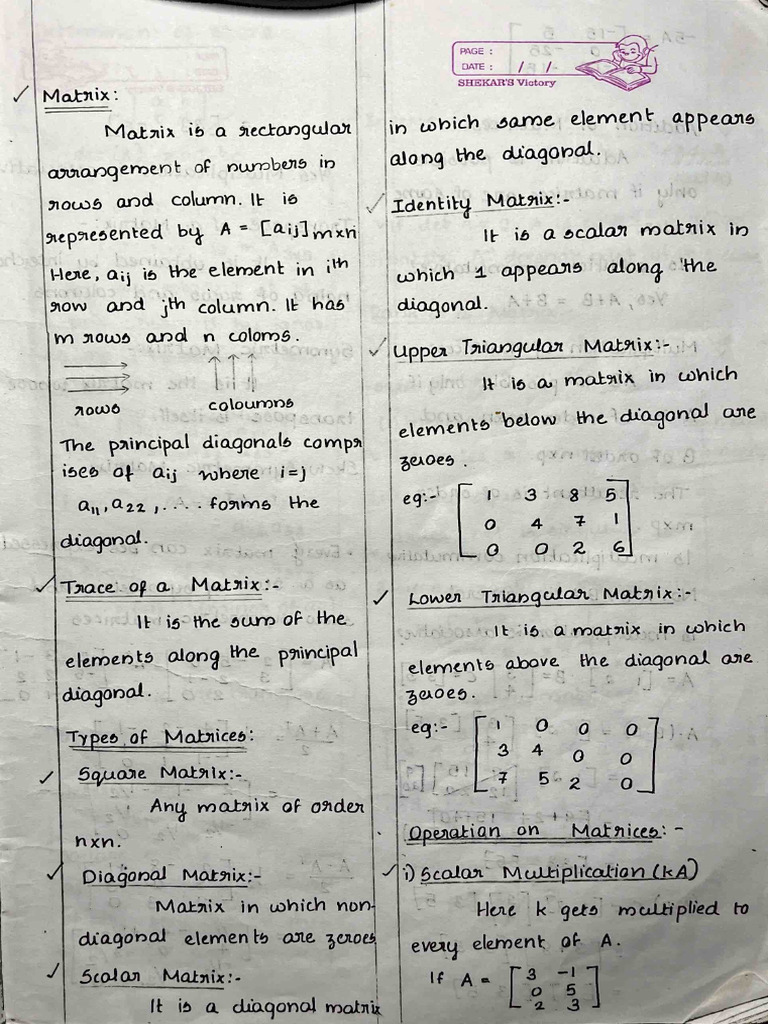 PAGE :
DATE : / / -
SHEKAR'S Victory
Matrix:
Matrix is a rectangular
arrangement of numbers in
rows and column. It is
represented by A = [aij] m×n
Here, aij is the element in ith
row and jth column. It has
m rows and n coloms.
rows coloumns
The principal diagonals compr
ises of aij where i=j
a11, a22, .... forms the
diagonal.
Trace of a Matrix:-
It is the sum of the
elements along the principal
diagonal.
Types of Matrices:
Square Matrix:-
Any matrix of order
n×n.
Diagonal Matrix:-
Matrix in which non-
diagonal elements are zeroes
Scalar Matrix:-
It is a diagonal matrix
in which same element appears
along the diagonal.
Identity Matrix:-
It is a scalar matrix in
which 1 appears along the
diagonal.
Upper Triangular Matrix:-
It is a matrix in which
elements below the diagonal are
zeroes.
eg:- [ 1 3 8 5
0 4 7 1
0 0 2 6 ]
Lower Triangular Matrix:-
It is a matrix in which
elements above the diagonal are
zeroes.
eg:- [ 1 0 0 0
3 4 0 0
7 5 2 0 ]
Operation on Matrices:-
i) Scalar Multiplication (kA)
Here k gets multiplied to
every element of A.
If A = [ 3 -1
0 5
2 3 ]